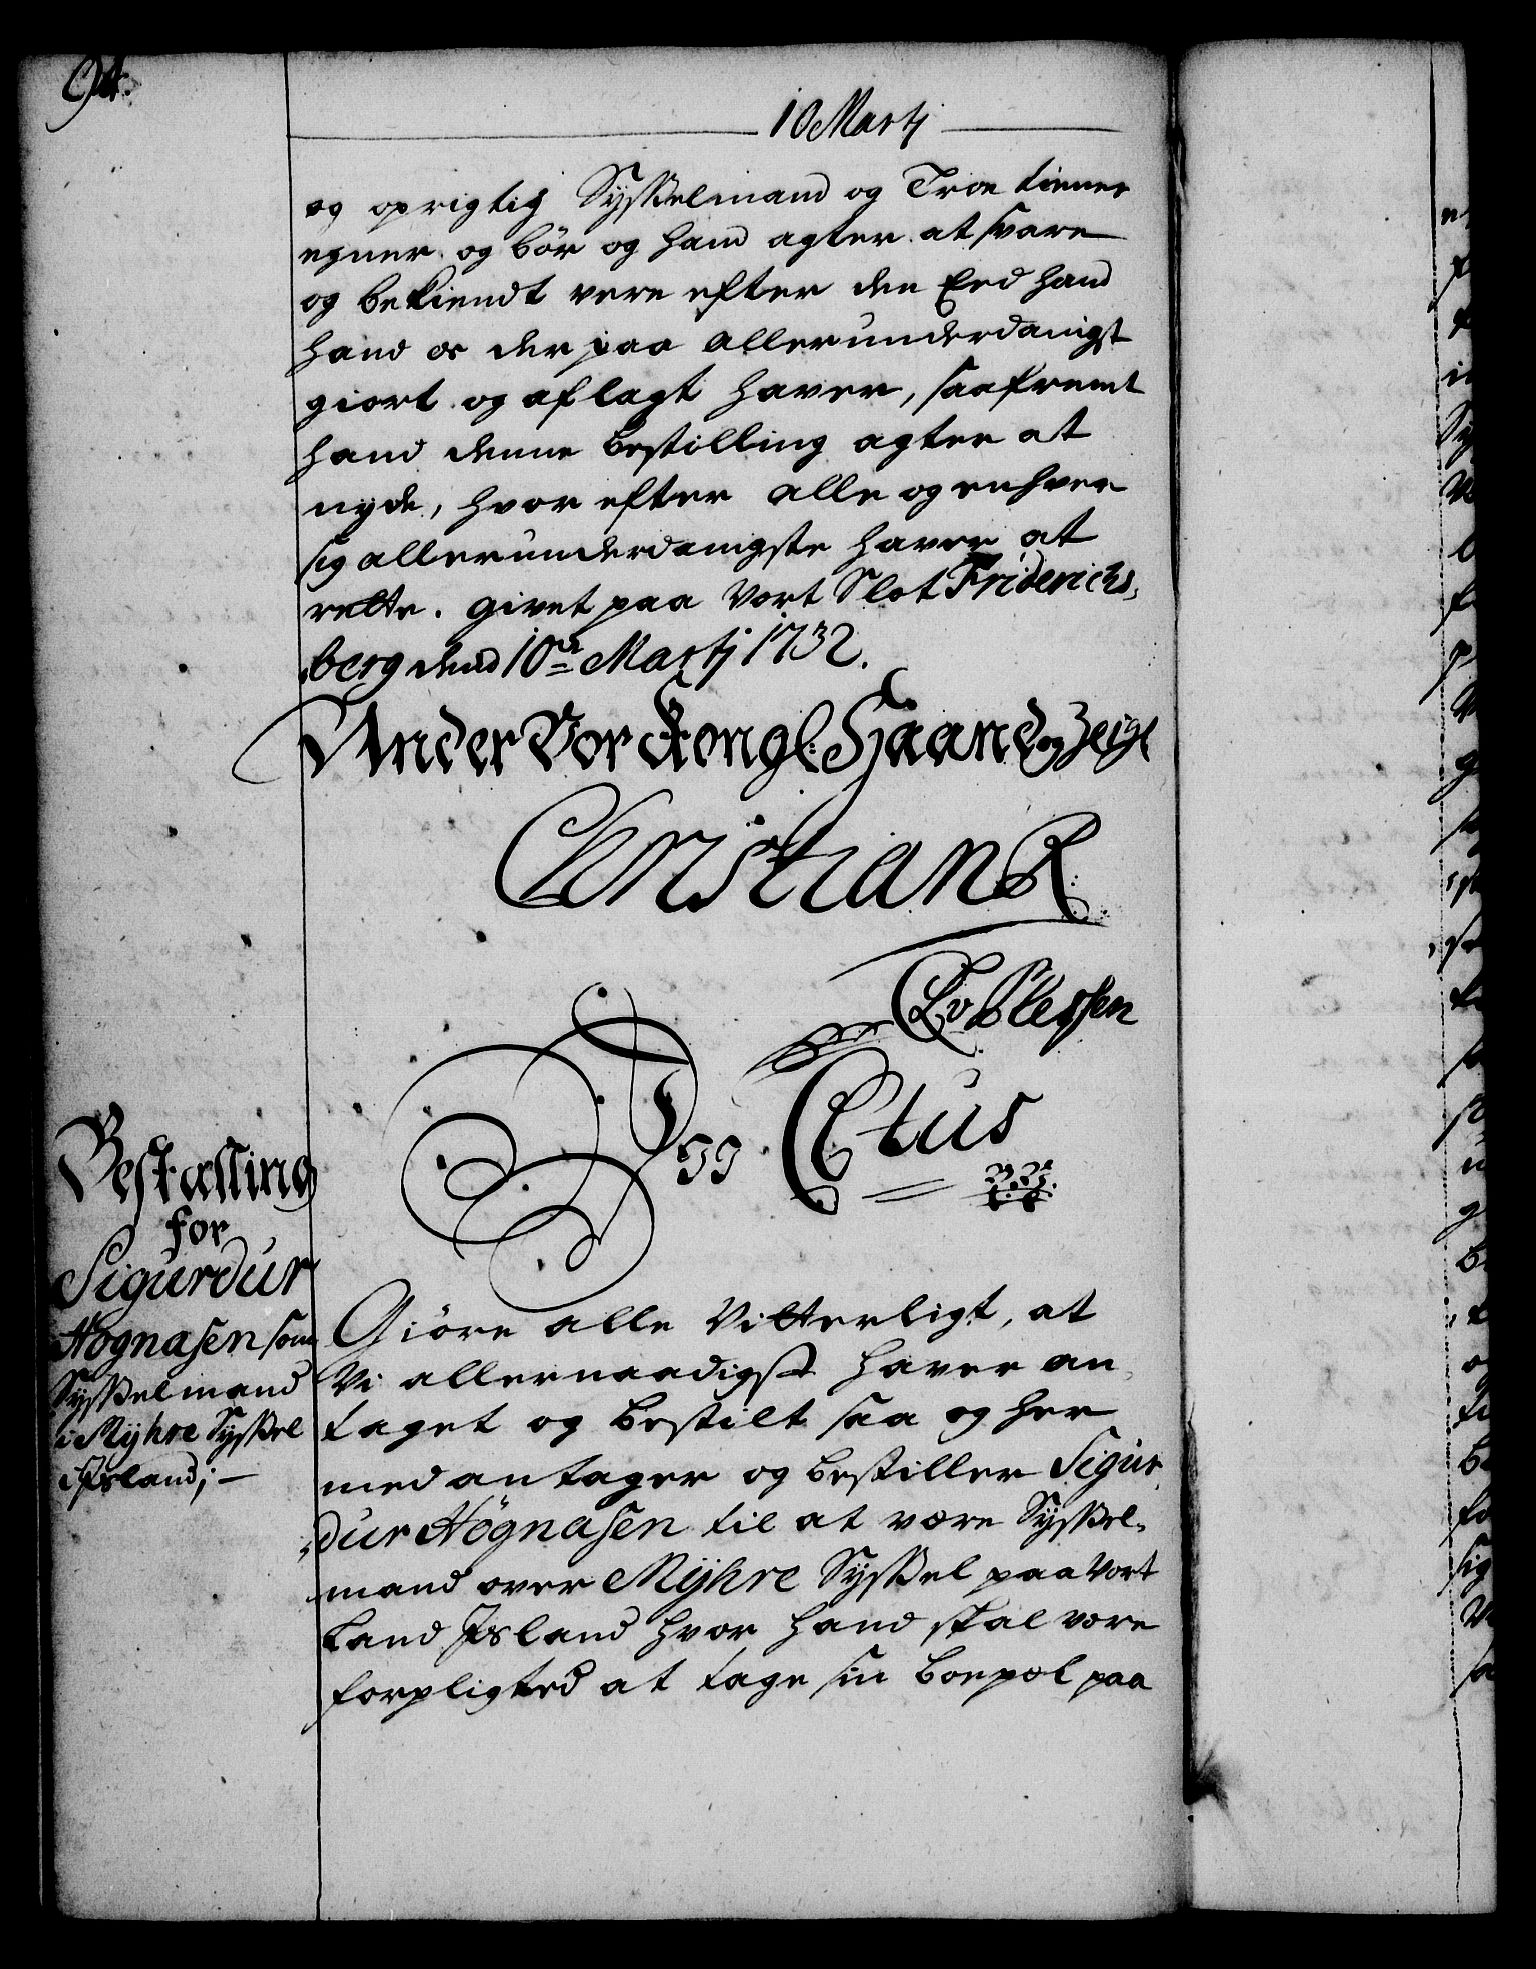 94.
10 Martj
og oprigtig Sysselmand og Troe tiener
egner og bör og hand agter at svare
og bekiendt vere efter den Eed hand
hand os der paa allerunderdanigst
giort og aflagt haver, saafremt
hand denne bestilling agter at
nyde, hvor efter alle og enhver
sig allerunderdanigste haver at
rette. givet paa Vort Slot Friderichs,
berg dend 10de Martj 1732.
Under Vor Kongl: Haand og Zeigl
Christian R:
CAvPlessen
Bestalling
for
Sigurdur
Högnasen som
Sysselmand
i Myhre Syssel
i Jsland; —
Giöre alle Vitterligt, at
Vi allernaadigst haver an,
taget og bestilt saa og her
med antager og bestiller Sigur,
dur Högnasen til at være Syssel,
mand over Myhre Syssel paa Vort
Land Jsland hvor hand skal være
forpligted at tage sin boepæl paa